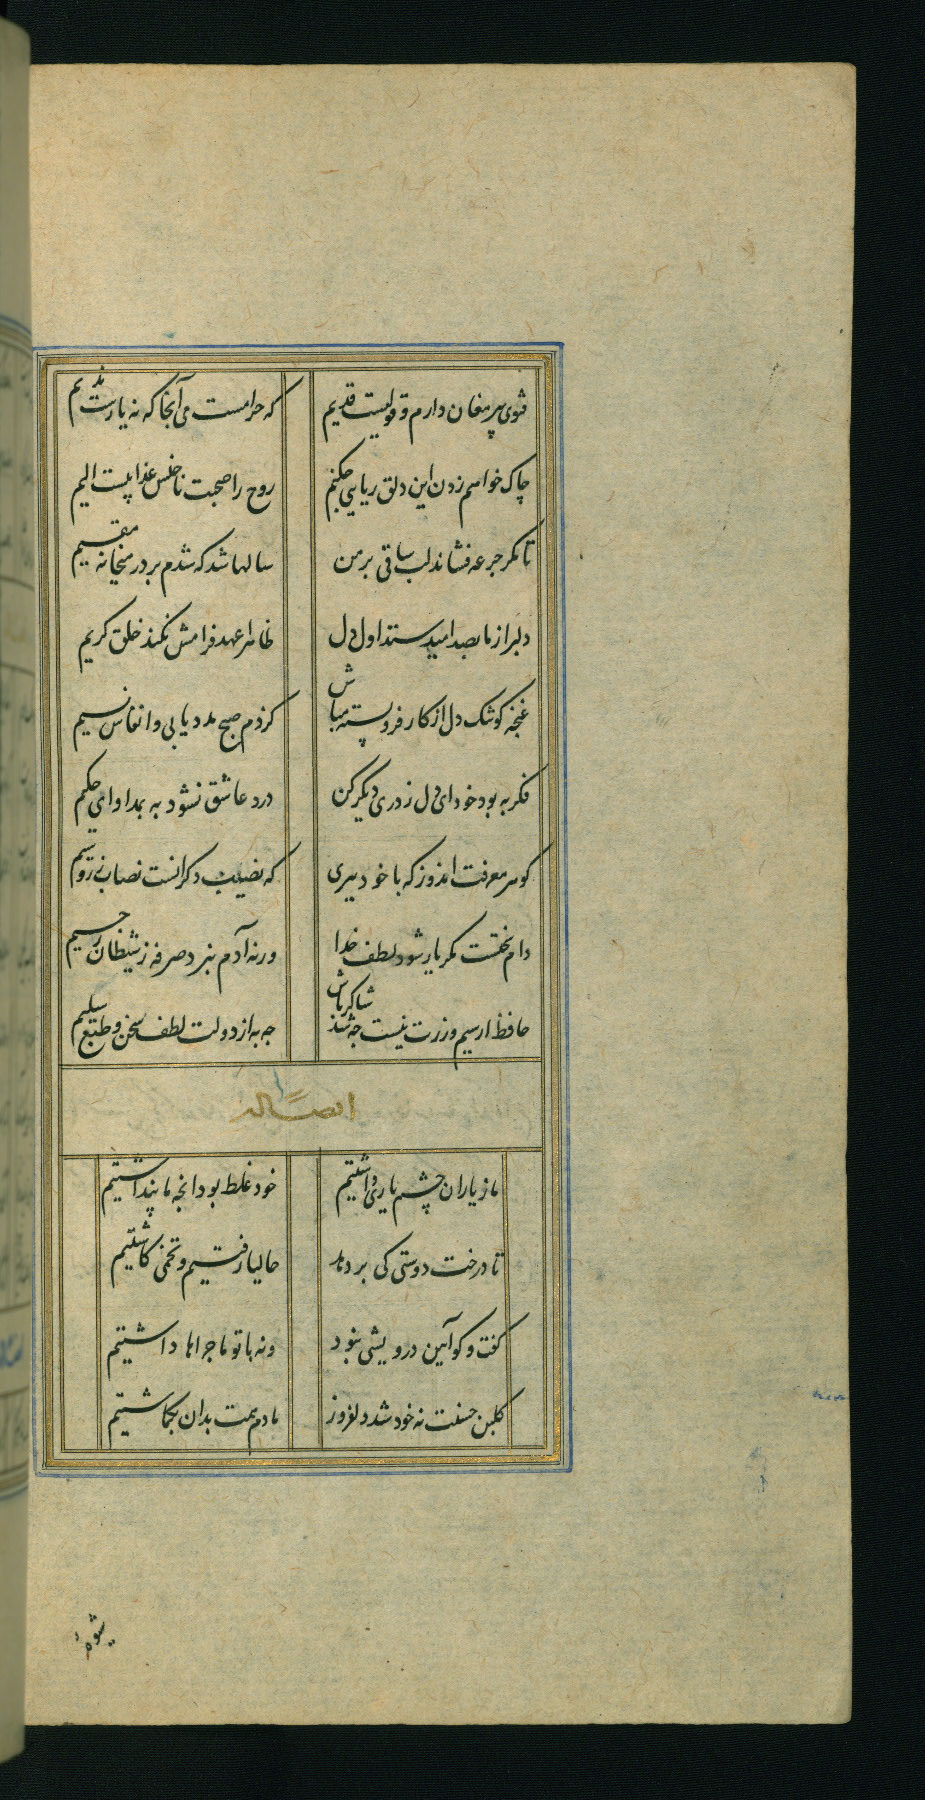 فتوی پیر مغان دارم و قولیست قدیم
که حرامست می آنجا که نه یارست ندیم
چاک خواهم زدن این دلق ریایی چکنم
روح را صحبت ناجنس عذابیست الیم
تا مکر جرعه فشاند لب ساقی بر من
سالها شد که شدم بر در میخانه مقیم
دلبر از ما بصد امید ستد اول دل
ظاهرا عهد فرامش نکند خلق کریم
غنچه کو تنک دل از کار فروبسته مباش
کز دم صبح مدد یابی و انفاس نسیم
فکر به بود خود ای دل ز دری دیکر کن
درد عاشق نشود به بمداوای حکیم
کوهر معرفت اندوز که با خود ببری
که نصیب دکرانست نصاب زر و سیم
دام سختست مکر یار شود لطف خدا
ورنه آدم نبرد صرفه ز شیطان رجیم
حافظ ار سیم و زرت نیست چه شد شاکر باش
چه به از دولت لطف سخن و طبع سلیم
ایضا له
ما ز یاران چشم یاری داشتیم
خود غلط بود انچه ما پنداشتیم
تا درخت دوستی کی بر دهد
حالیا رفتیم و تخمی کاشتیم
کفت و کو آیین درویشی نبود
ورنه با تو ماجراها داشتیم
کلبن حسنت نه خود شد دلفروز
ما دم همت بدان بکماشتیم
شیوه